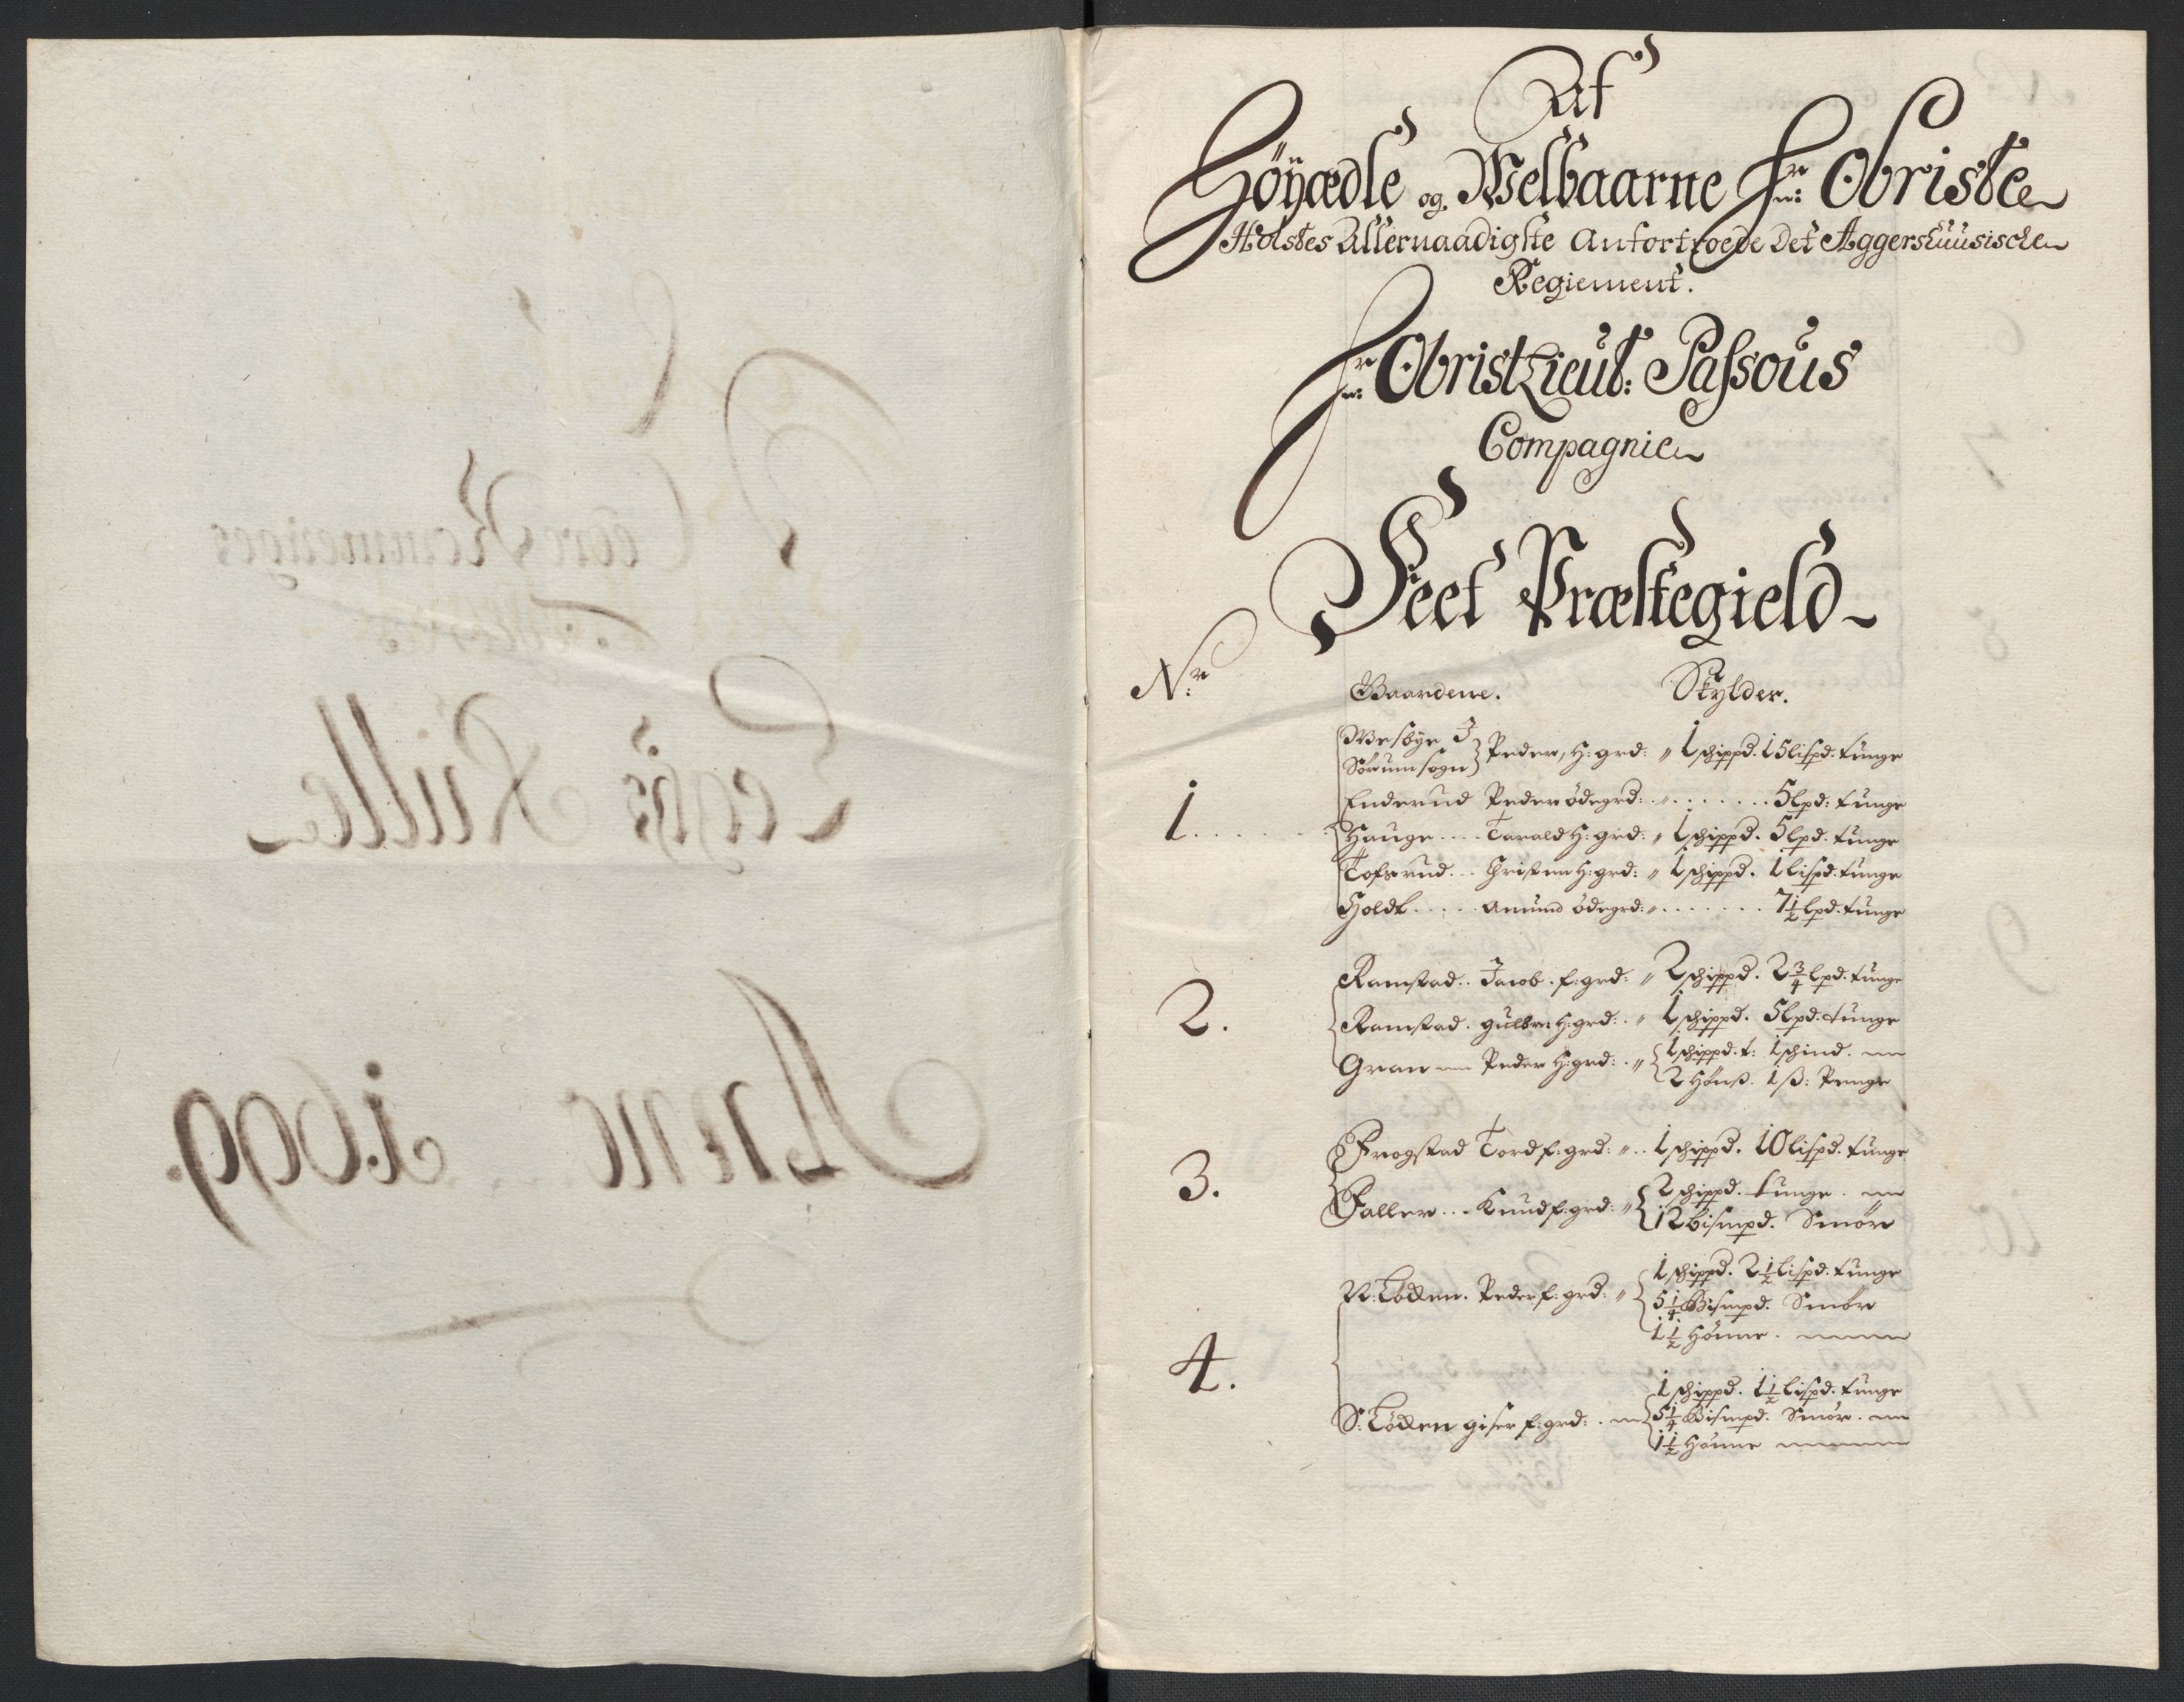 Af
Höyædle og Welbaarne Hr: Obriste
Holstes Allernaadigste Anfortroede Det Aggershuusischen
Regiement.
Hr: ObristLieut: Passous
Compagnie
Feet Præstegield
Nr: Gaardene. Skylder.
Wesbye I
Sørum sogn Peder, H: grd: „ 1 schippd. 15 lispd: tunge
Enderud Peder ödegrd: „ 5 lpd: tunge
1. Hauge Tarald H: grd: „ 1 schippd. 5 lpd: tunge
Tofsrud Christen H: grd: „ 1 schippd. 1 lispd. tunge
Holdt Amund ödegrd: „ 7½ lpd. tunge
Ramstad Jacob f: grd: „ 2 schippd. 2¾ lpd. tunge
2. Ramstad Gulbrn H: grd: „ 1 schippd. 5 lpd. tunge
Gran Peder H: grd: „ 1 schippd. t: 1 schind.
2 Hönß. 1 ß: Penge
Frogstad Tord f: grd: „ 1 schippd. 10 lispd. tunge
3. Faller Knud f: grd: „ 2 schippd. tunge
12 bismpd. Smör
N: Lödden. Peder f: grd: „ 1 schippd. 2½ lispd. tunge
5¼ Bismpd. Smör
1½ Hönne.
4.
S: Lödden giser f: grd: 1 schippd. 1½ lispd. tunge
5¼ Bismpd. Smör.
1½ Hönne